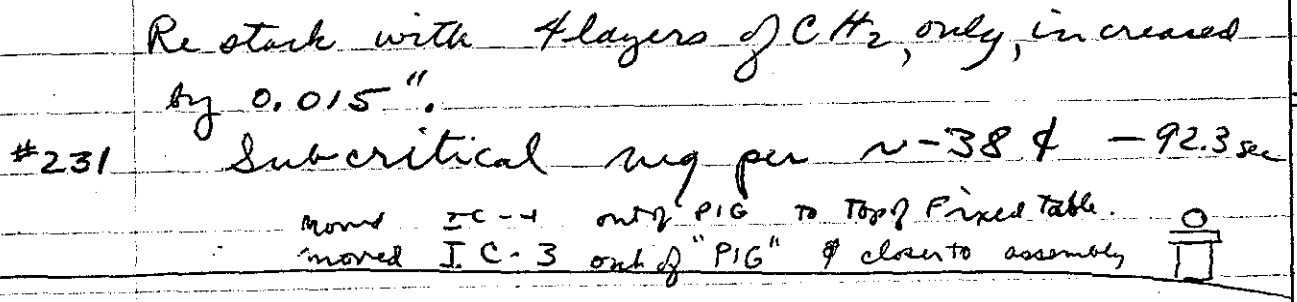 Re stack with 4 layers of CH2, only, increased
by 0.015".
#231 Subcritical neg per ~-38 ¢ -92.3 sec
moved IC-4 out of "PIG" to Top of Fixed Table.
moved I.C-3 out of "PIG" & closer to assembly